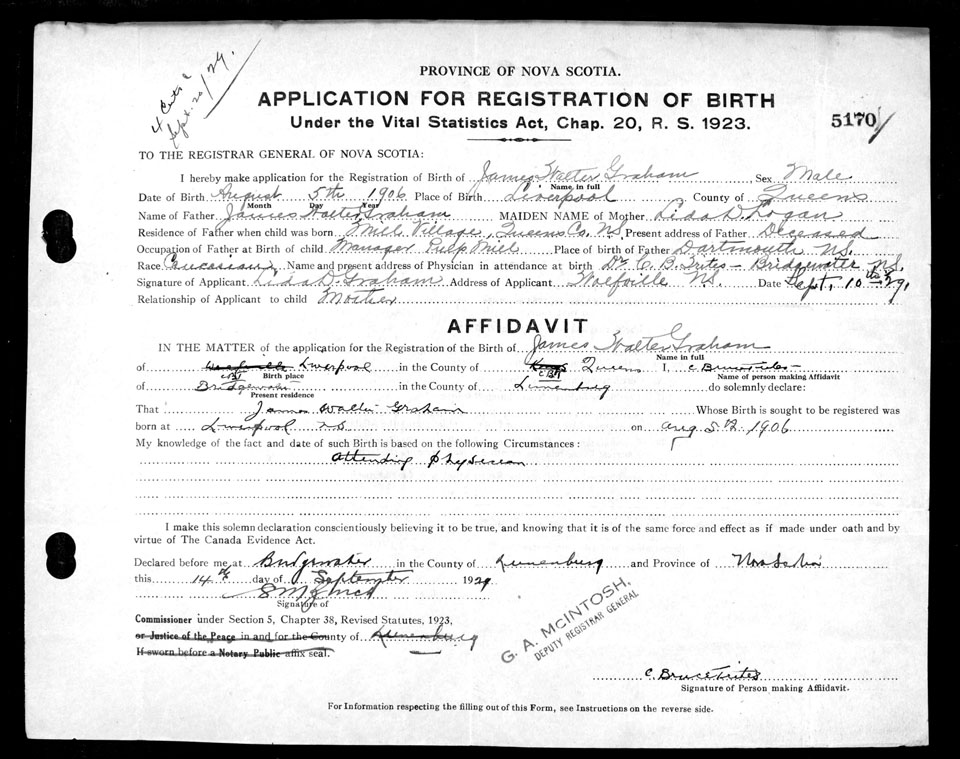 4 Certs
Sept. 20/29.
PROVINCE OF NOVA SCOTIA.
APPLICATION FOR REGISTRATION OF BIRTH
Under the Vital Statistics Act, Chap. 20, R. S. 1923.
5170
TO THE REGISTRAR GENERAL OF NOVA SCOTIA:
I hereby make application for the Registration of Birth of James Walter Graham Sex Male
Name in full
Date of Birth August 5th 1906 Place of Birth Liverpool County of Queens
Month Day Year
Name of Father James Walter Graham MAIDEN NAME of Mother Lida D. Logan
Residence of Father when child was born Mill Village, Queens Co. NS. Present address of Father Deceased
Occupation of Father at Birth of child Manager Pulp Mill Place of birth of Father Dartmouth NS.
Race Caucasian Name and present address of Physician in attendance at birth Dr. C. B. Trites - Bridgewater NS.
Signature of Applicant Lida D. Graham Address of Applicant Wolfville NS. Date Sept. 10th 29.
Relationship of Applicant to child Mother
AFFIDAVIT
IN THE MATTER of the application for the Registration of the Birth of James Walter Graham
Name in full
of Liverpool in the County of Kings Queens I, C Bruce Trites
CBT Birth place CBT Name of person making Affidavit
of Bridgewater in the County of Lunenburg do solemnly declare:
Present residence
That James Walter Graham Whose Birth is sought to be registered was
born at Liverpool NS on Aug 5th 1906
My knowledge of the fact and date of such Birth is based on the following Circumstances:
Attending physician
I make this solemn declaration conscientiously believing it to be true, and knowing that it is of the same force and effect as if made under oath and by
virtue of The Canada Evidence Act.
Declared before me at Bridgewater in the County of Lunenburg and Province of Nova Scotia
this 14th day of September 1929
Signature of
Commissioner under Section 5, Chapter 38, Revised Statutes, 1923,
or Justice of the Peace in and for the County of Lunenburg
If sworn before a Notary Public affix seal.
G. A. McINTOSH,
DEPUTY REGISTRAR GENERAL
C. Bruce Trites
Signature of Person making Affidavit.
For Information respecting the filling out of this Form, see Instructions on the reverse side.